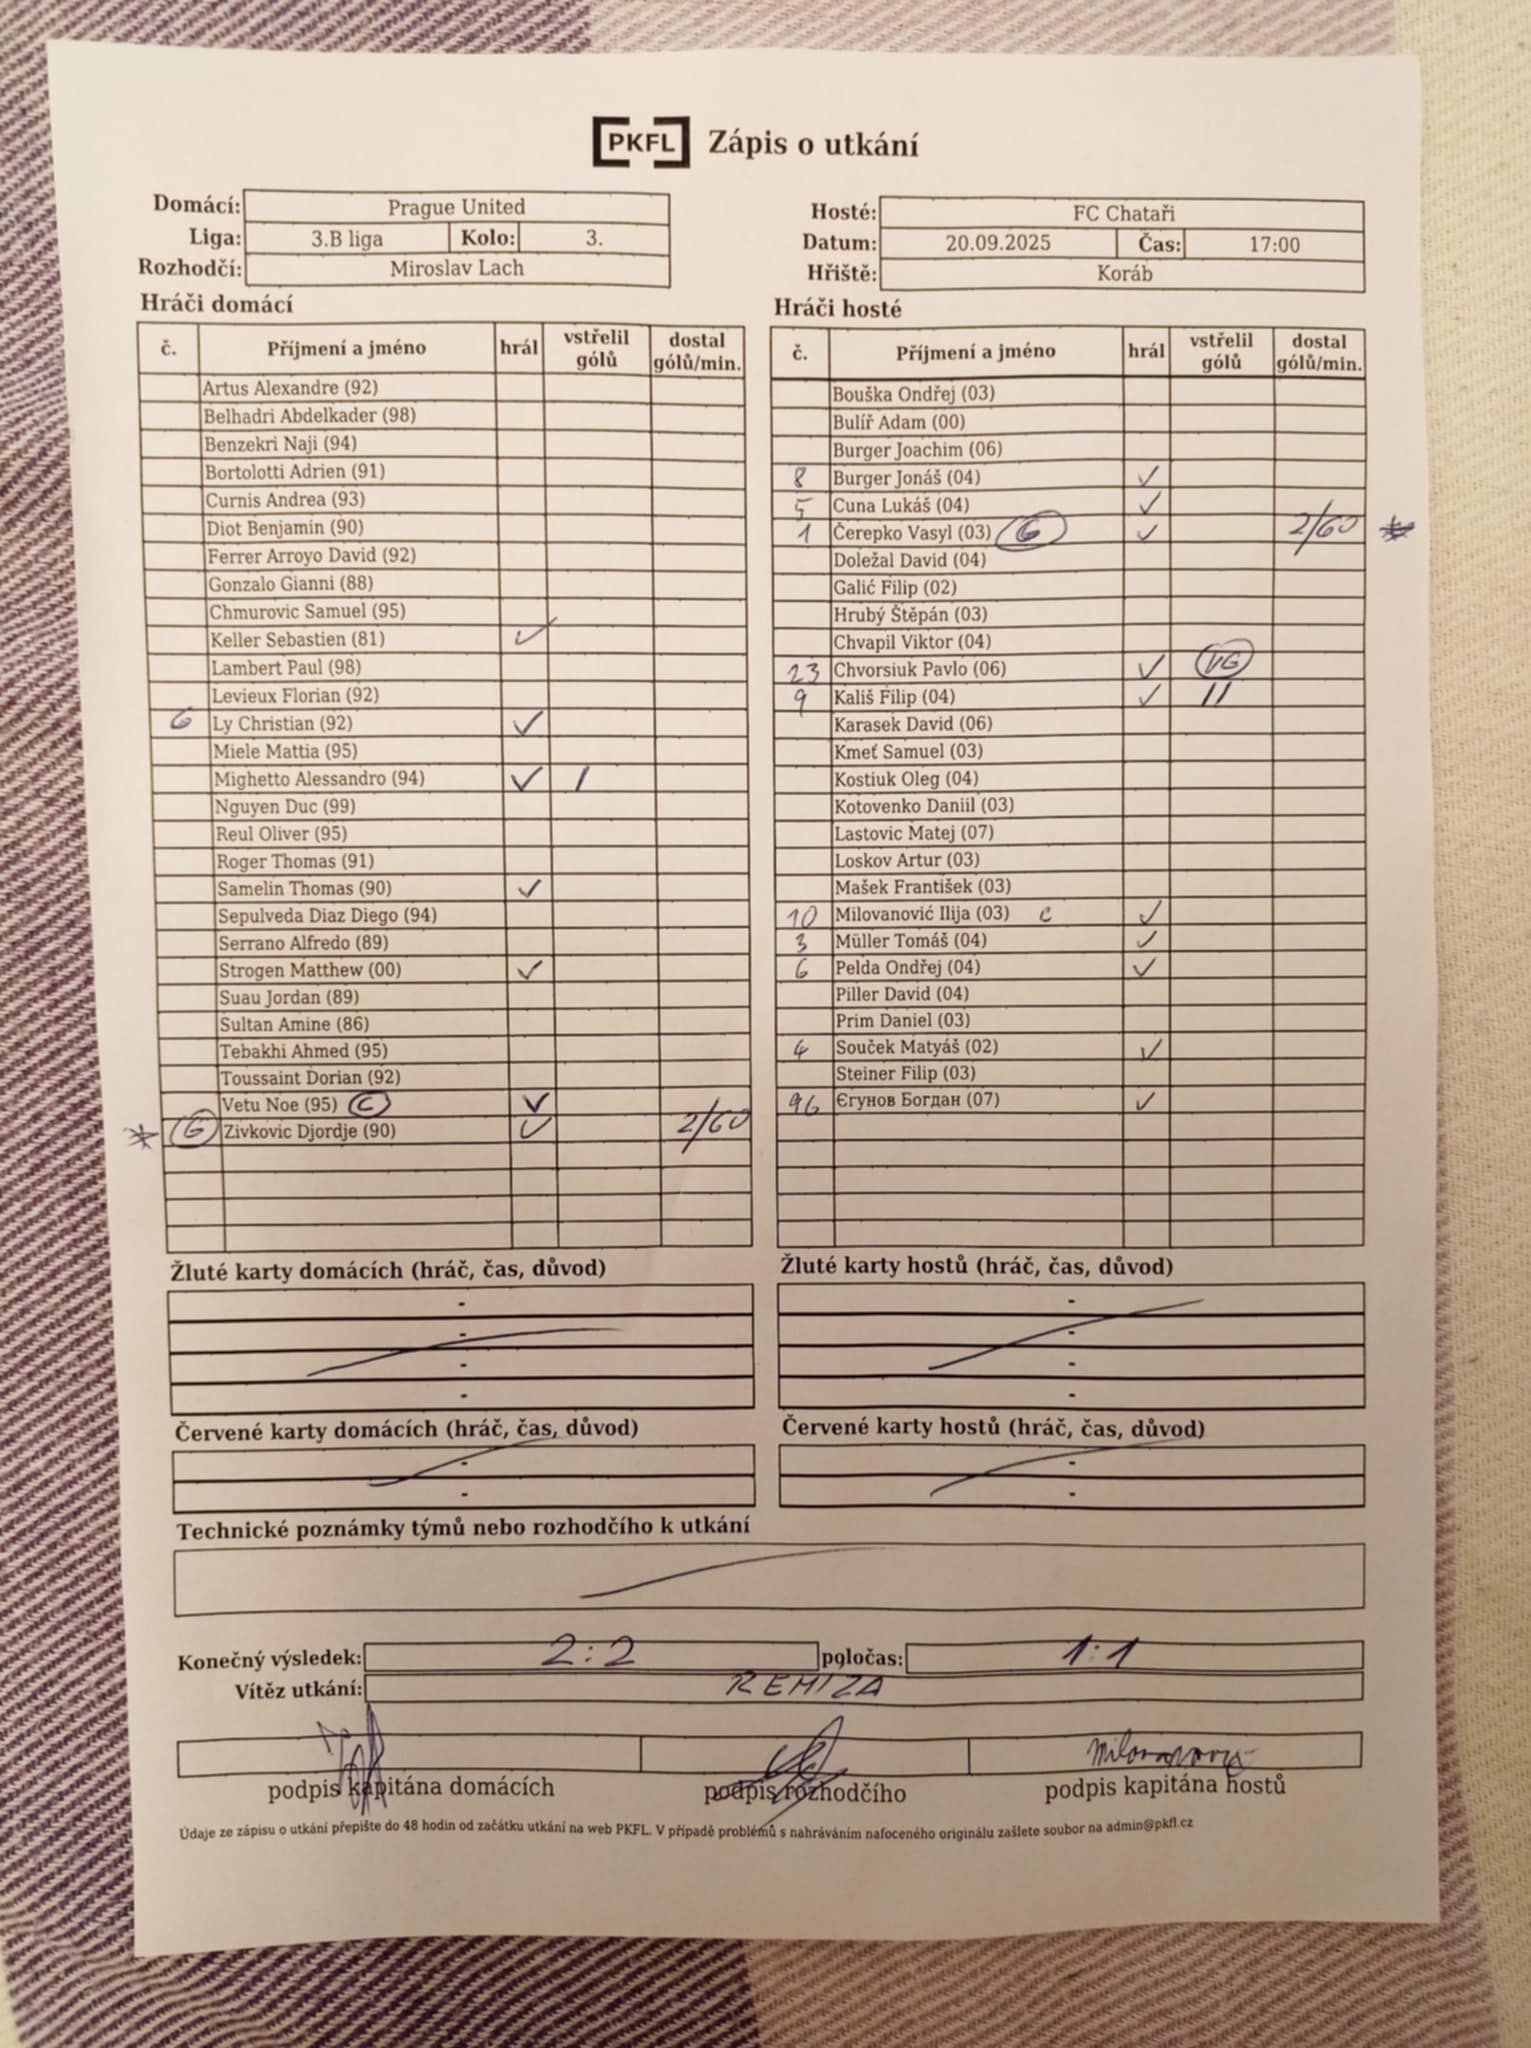 PKFL Zápis o utkání
Domácí: Prague United
Liga: 3.B liga Kolo: 3.
Rozhodčí: Miroslav Lach
Hosté: FC Chataři
Datum: 20.09.2025 Čas: 17:00
Hřiště: Koráb
Hráči domácí
č. Příjmení a jméno hrál vstřelil gólů dostal gólů/min.
Artus Alexandre (92)
Belhadri Abdelkader (98)
Benzekri Naji (94)
Bortolotti Adrien (91)
Curnis Andrea (93)
Diot Benjamin (90)
Ferrer Arroyo David (92)
Gonzalo Gianni (88)
Chmurovic Samuel (95)
Keller Sebastien (81) ✓
Lambert Paul (98)
Levieux Florian (92)
6 Ly Christian (92) ✓
Miele Mattia (95)
Mighetto Alessandro (94) ✓ /
Nguyen Duc (99)
Reul Oliver (95)
Roger Thomas (91)
Samelin Thomas (90) ✓
Sepulveda Diaz Diego (94)
Serrano Alfredo (89)
Strogen Matthew (00) ✓
Suau Jordan (89)
Sultan Amine (86)
Tebakhi Ahmed (95)
Toussaint Dorian (92)
Vetu Noe (95) C ✓
* G Zivkovic Djordje (90) ✓ 2/60
Hráči hosté
č. Příjmení a jméno hrál vstřelil gólů dostal gólů/min.
Bouška Ondřej (03)
Bulíř Adam (00)
Burger Joachim (06)
8 Burger Jonáš (04) ✓
5 Cuna Lukáš (04) ✓
1 Čerepko Vasyl (03) G ✓ 2/60 *
Doležal David (04)
Galić Filip (02)
Hrubý Štěpán (03)
Chvapil Viktor (04)
23 Chvorsiuk Pavlo (06) ✓ VG
9 Kališ Filip (04) ✓ //
Karasek David (06)
Kmeť Samuel (03)
Kostiuk Oleg (04)
Kotovenko Daniil (03)
Lastovic Matej (07)
Loskov Artur (03)
Mašek František (03)
10 Milovanović Ilija (03) c ✓
3 Müller Tomáš (04) ✓
6 Pelda Ondřej (04) ✓
Piller David (04)
Prim Daniel (03)
4 Souček Matyáš (02) ✓
Steiner Filip (03)
96 Єгунов Богдан (07) ✓
Žluté karty domácích (hráč, čas, důvod)
-
-
-
-
Žluté karty hostů (hráč, čas, důvod)
-
-
-
-
Červené karty domácích (hráč, čas, důvod)
-
-
Červené karty hostů (hráč, čas, důvod)
-
-
Technické poznámky týmů nebo rozhodčího k utkání
Konečný výsledek: 2:2 poločas: 1:1
Vítěz utkání: REMIZA
podpis kapitána domácích podpis rozhodčího podpis kapitána hostů
Údaje ze zápisu o utkání přepište do 48 hodin od začátku utkání na web PKFL. V případě problémů s nahráváním nafoceného originálu zašlete soubor na admin@pkfl.cz